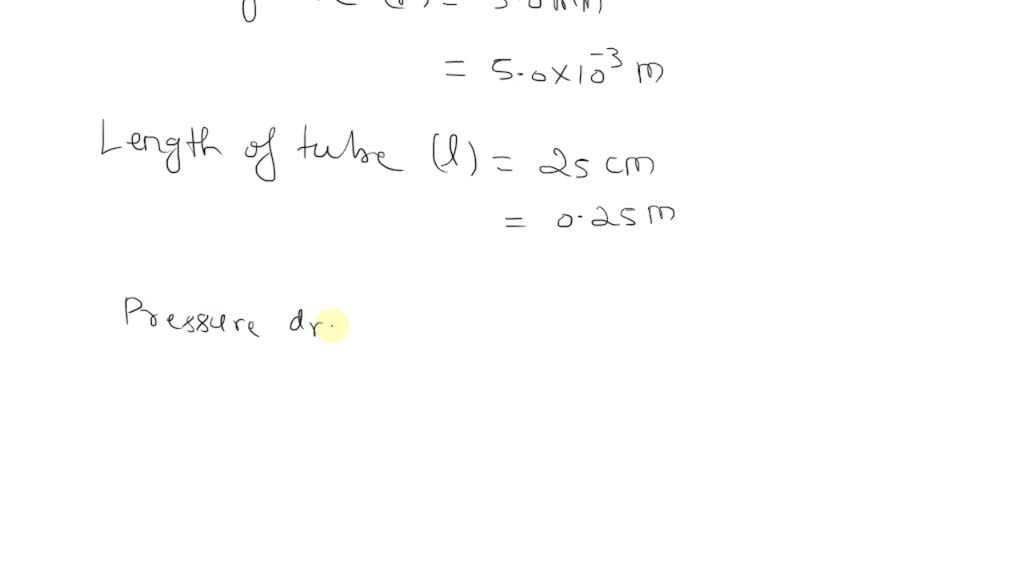 = 5.0×10⁻³ m
Length of tube (l) = 25 cm
= 0.25 m
Pressure dr